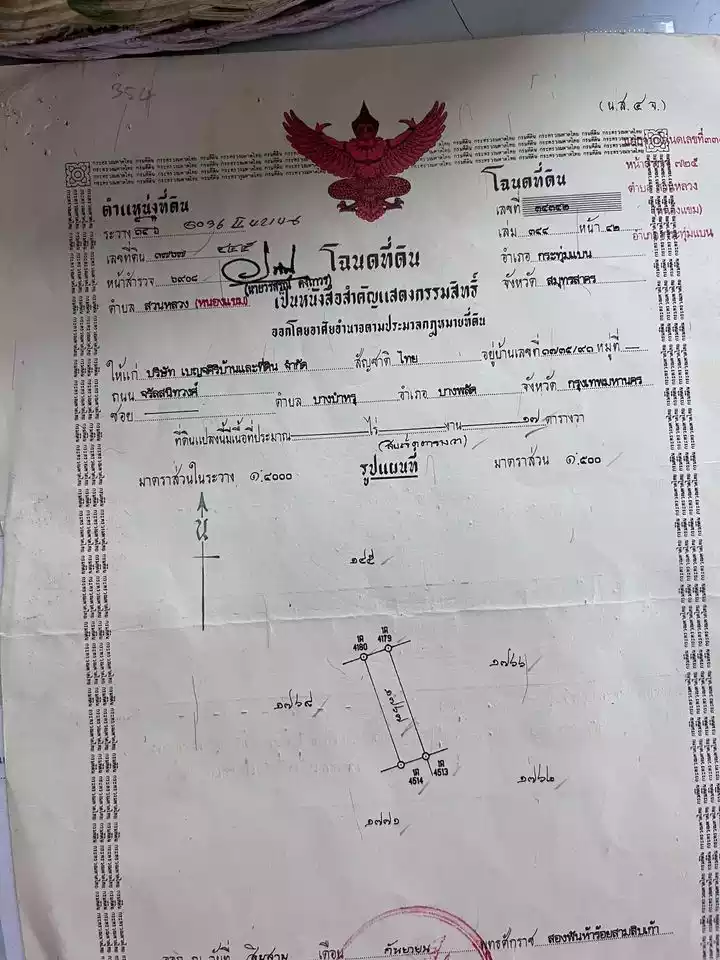 354
(น.ส. ๔ จ.)
ตำแหน่งที่ดิน
โฉนดที่ดิน
ระวาง 5036 II
เลขที่ ๓๔๓๔๒
หน้าสำรวจ ๗๒๕
เลขที่ดิน ๑๗๖๗
เล่ม ๓๔๔ หน้า ๔๒
หน้าสำรวจ ๖๙๐๘
โฉนดที่ดิน
อำเภอ กระทุ่มแบน
ตำบล สวนหลวง (หนองแขม)
เป็นหนังสือสำคัญแสดงกรรมสิทธิ์
จังหวัด สมุทรสาคร
ออกโดยอาศัยอำนาจตามประมวลกฎหมายที่ดิน
ให้แก่ บริษัท เบญจศิริบ้านและที่ดิน จำกัด สัญชาติ ไทย อยู่บ้านเลขที่ ๑๗๓๕/๙๐ หมู่ที่ —
ถนน จรัลสนิทวงศ์ ตำบล บางบำหรุ อำเภอ บางพลัด จังหวัด กรุงเทพมหานคร
ซอย
ที่ดินแปลงนี้มีเนื้อที่ประมาณ ไร่ งาน ๑๗ ตารางวา
(สิบเจ็ดตารางวา)
มาตราส่วนในระวาง ๑:๔๐๐๐ รูปแผนที่ มาตราส่วน ๑:๕๐๐
น
๑๔๕
4180
4179
๑๗๖๖
๑๗๖๘
๑๗๖๗
4514
4513
๑๗๖๒
๑๗๗๑
ออก ณ วันที่ สิบสาม เดือน กันยายน พุทธศักราช สองพันห้าร้อยสามสิบเก้า